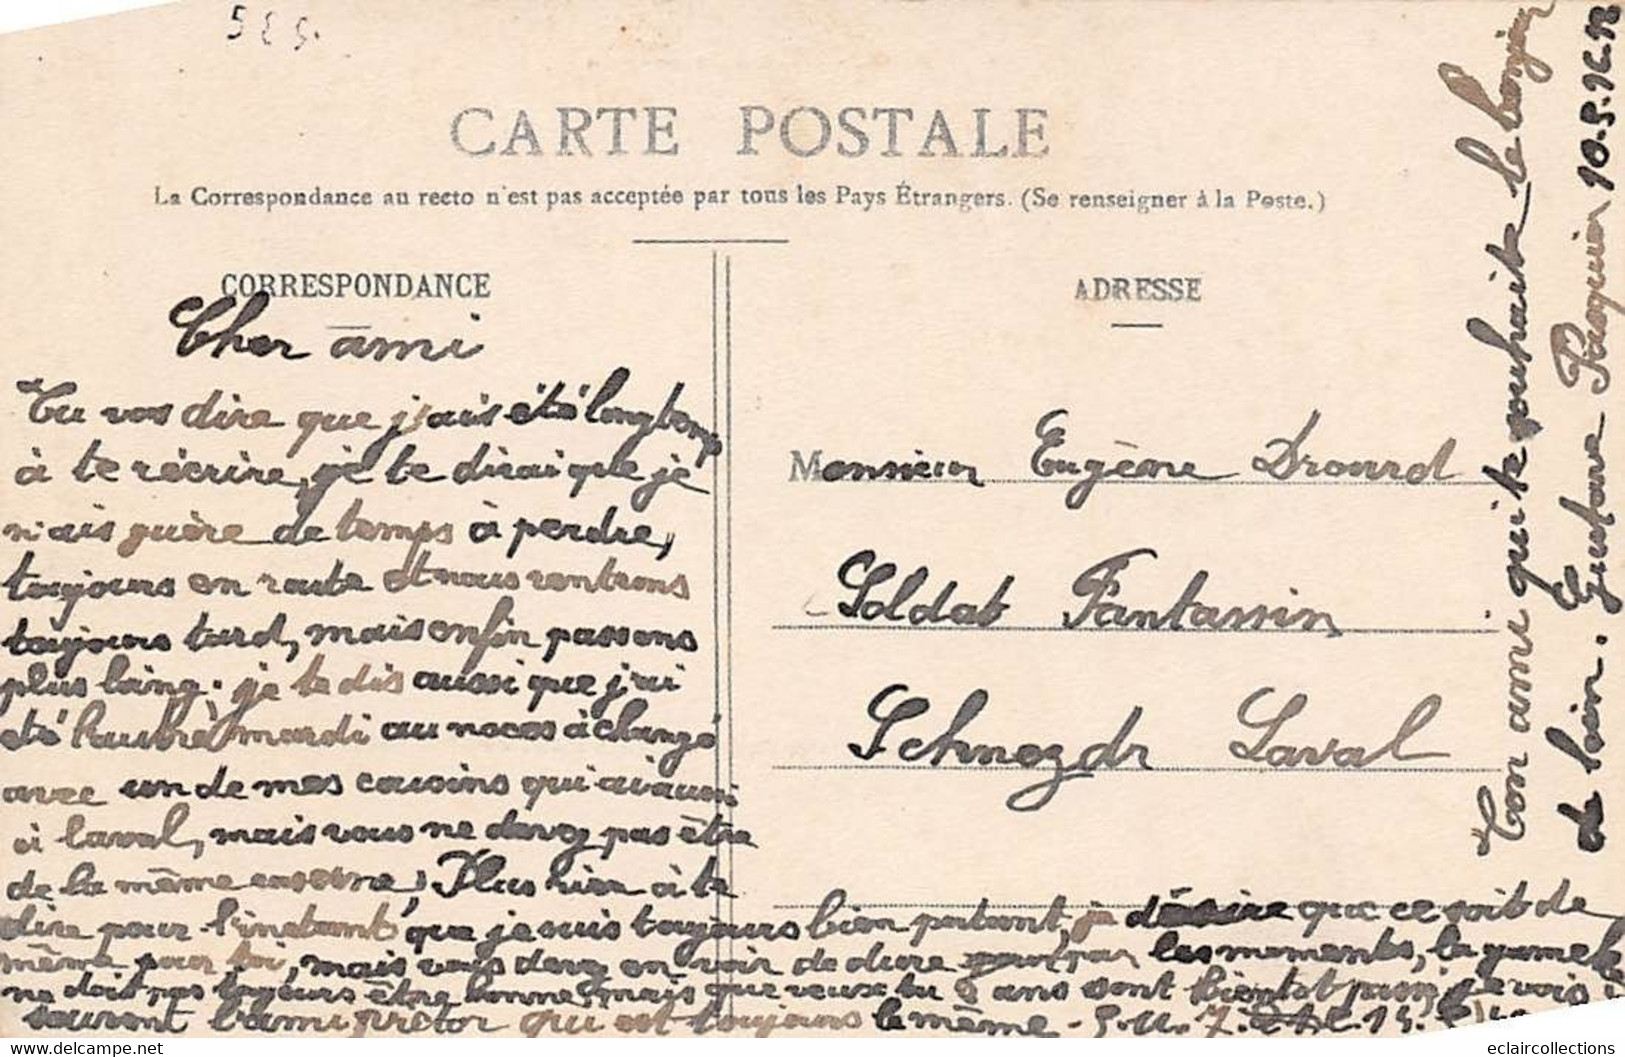 CARTE POSTALE
La Correspondance au recto n'est pas acceptée par tous les Pays Étrangers. (Se renseigner à la Poste.)
CORRESPONDANCE
Cher ami
Tu vas dire que j'ais été longtemp
à te récrire, je te dirai que je
n'ais guère de temps à perdre,
toujours en route et nous rentrons
toujours tard, mais enfin passons
plus loing. je te dis aussi que j'ai
été l'autre mardi au noces à changé
avec un de mes cousins qui
à laval, mais vous ne devez pas être
de la même Plus rien à te
dire pour l'instant, que je suis toujours bien portant, je désire que ce soit de
même pour toi, mais vous devez en voir de dure par les moments, la gamele
ne doit pas toujours être bonne mais que veux tu 2 ans sont bientot je vois
souvent l'ami qui est toujours le même -
ADRESSE
Monsieur Eugène Drouard
Soldat Fantassin
Schnezdr Laval
Ton ami qui te souhaite le bonjour
de loin. Gustave Pasquier
eclaircollections
delcampe.net